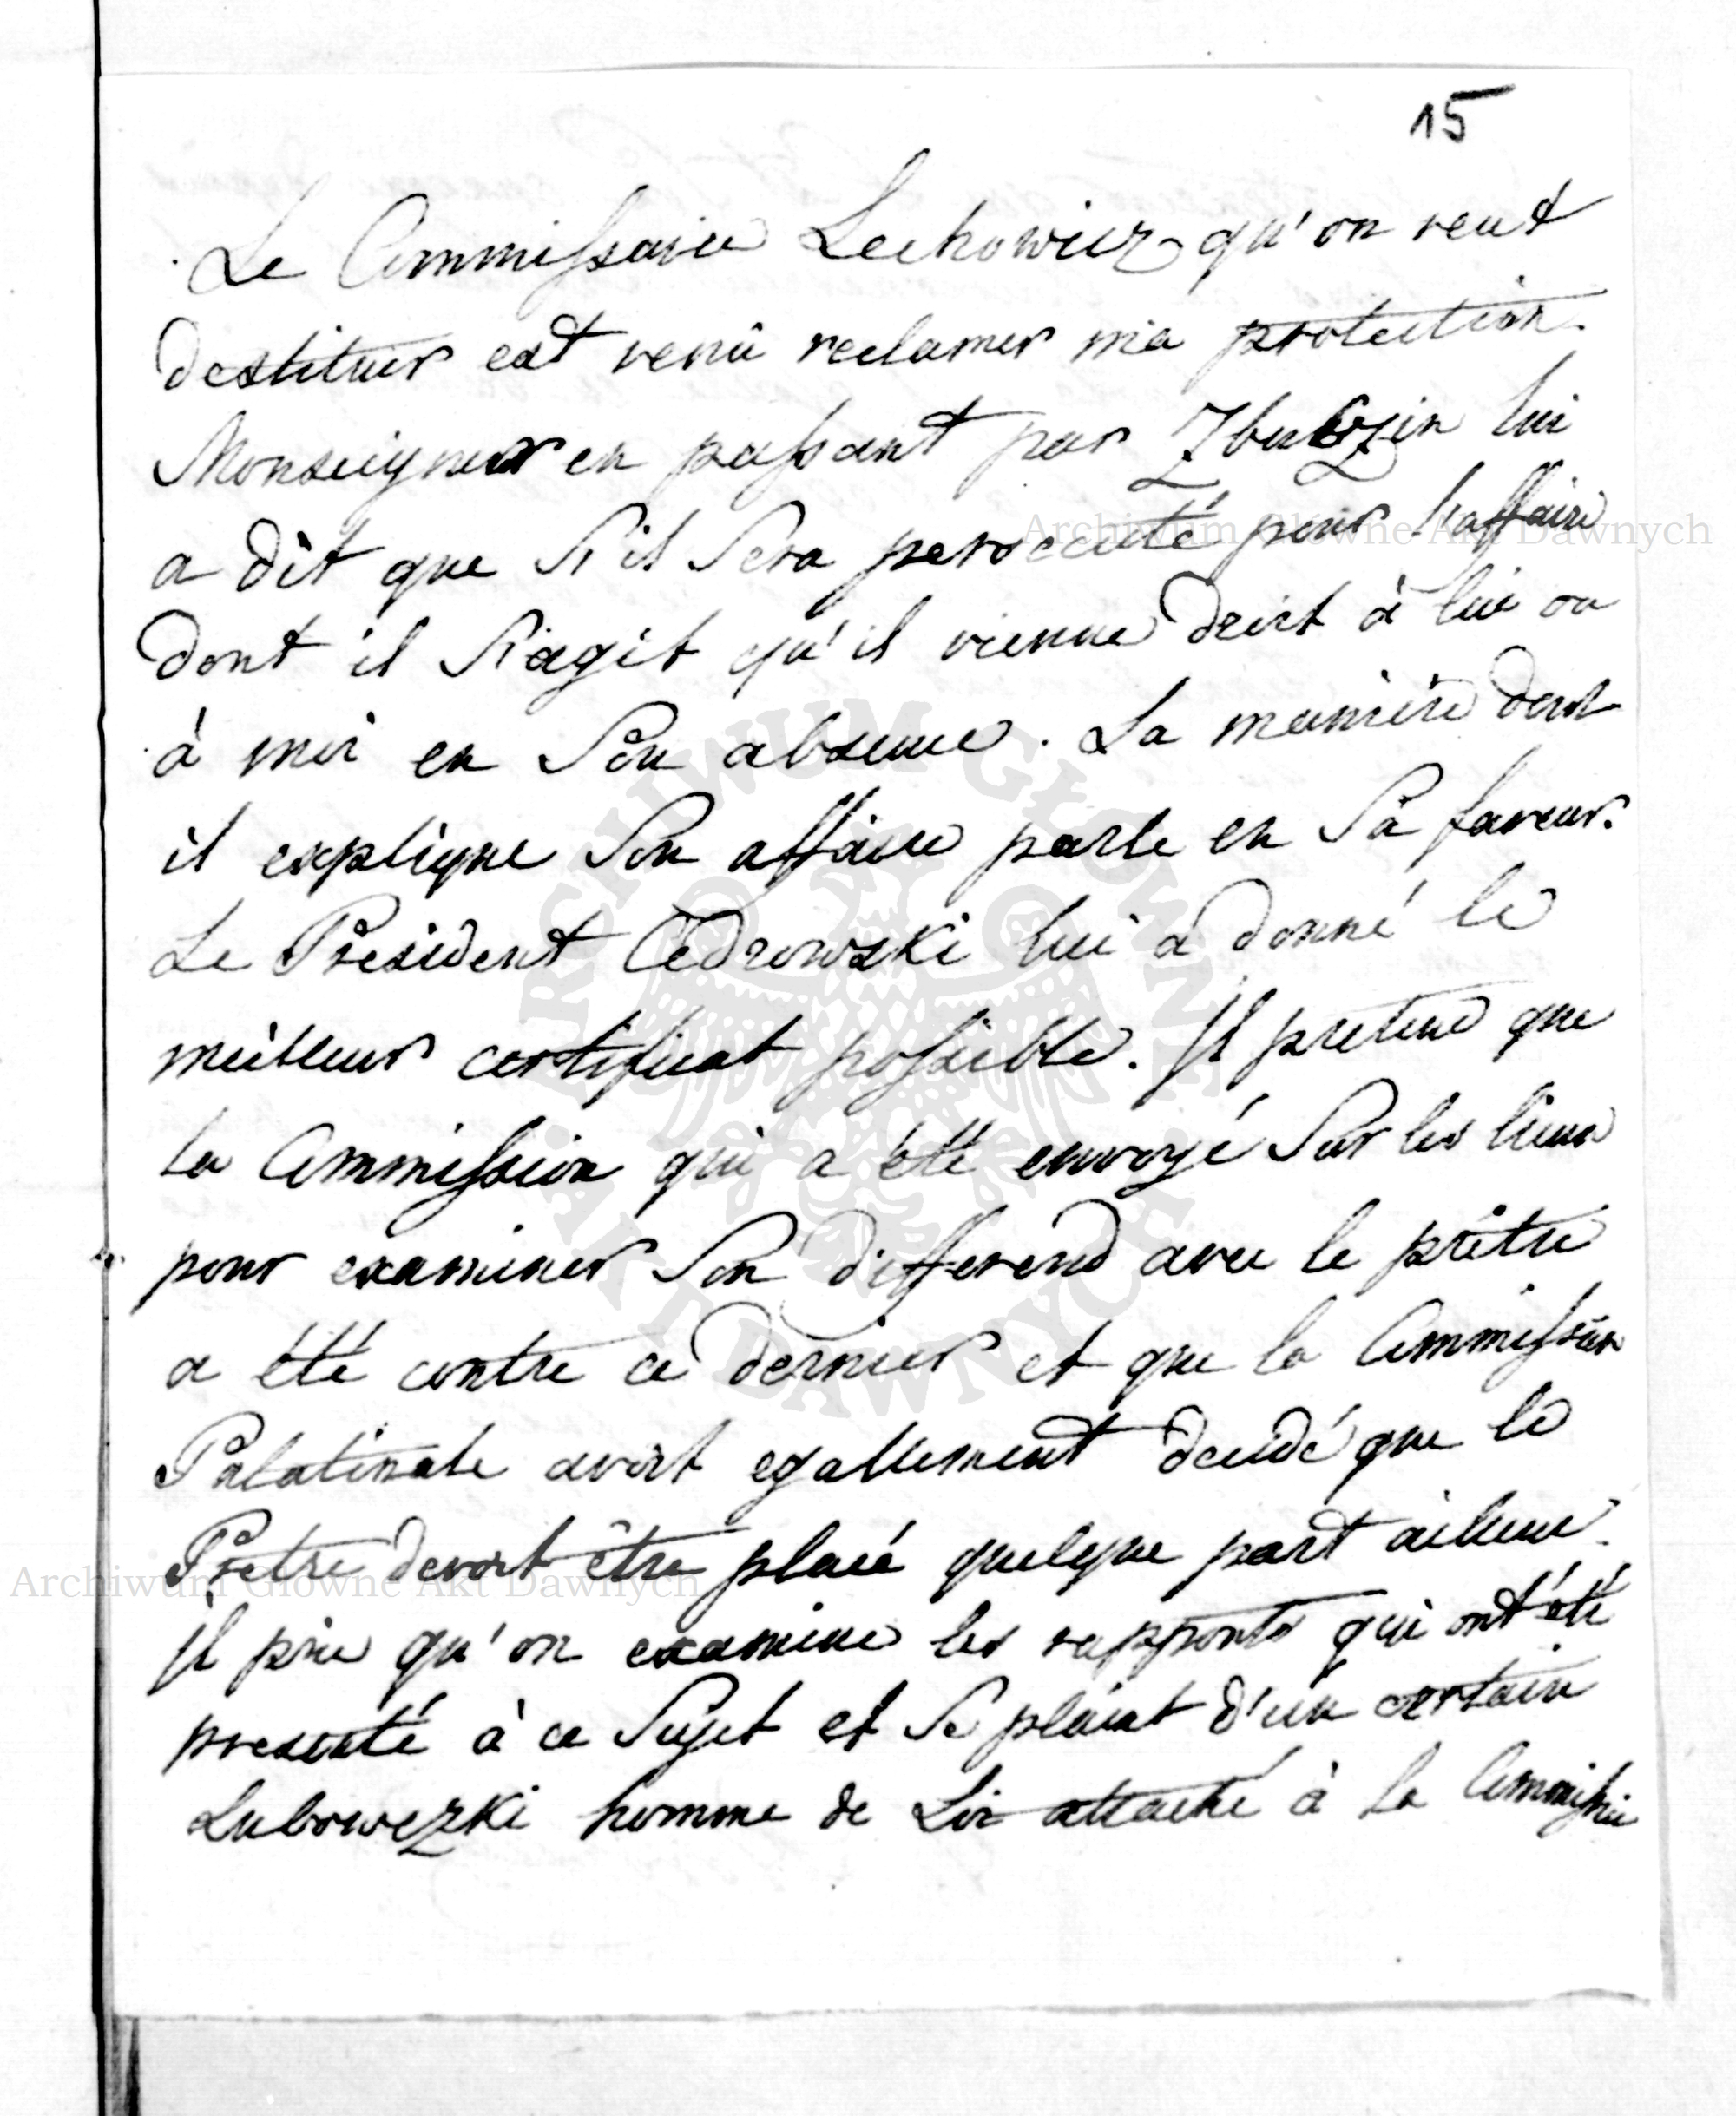 15
Le Commissaire Lechowicz qu'on veut
destituer est venû reclamer ma protection.
Monseigneur en passant par Zbuczin lui
a dit que s'il sera persecuté pour l'affaire
dont il s'agit qu'il vienne droit à lui ou
à moi en son absence. La manière dont
il explique son affaire parle en sa faveur.
Le President Cedrowski lui a donné le
meilleur certificat possible. Il pretend que
la Commission qui a été envoyé sur les lieux
pour examiner son differend avec le prêtre
a été contre ce dernier et que la Commission
Palatinale avoit egallement decidé que le
Pretre devoit être placé quelque part ailleur.
Il prie qu'on examine les rapports qui ont été
presenté à ce sujet et se plaint d'un certain
Lubowezki homme de Loi attaché à la Commission
Archiwum Główne Akt Dawnych
ARCHIWUM GŁÓWNE AKT DAWNYCH
Archiwum Główne Akt Dawnych